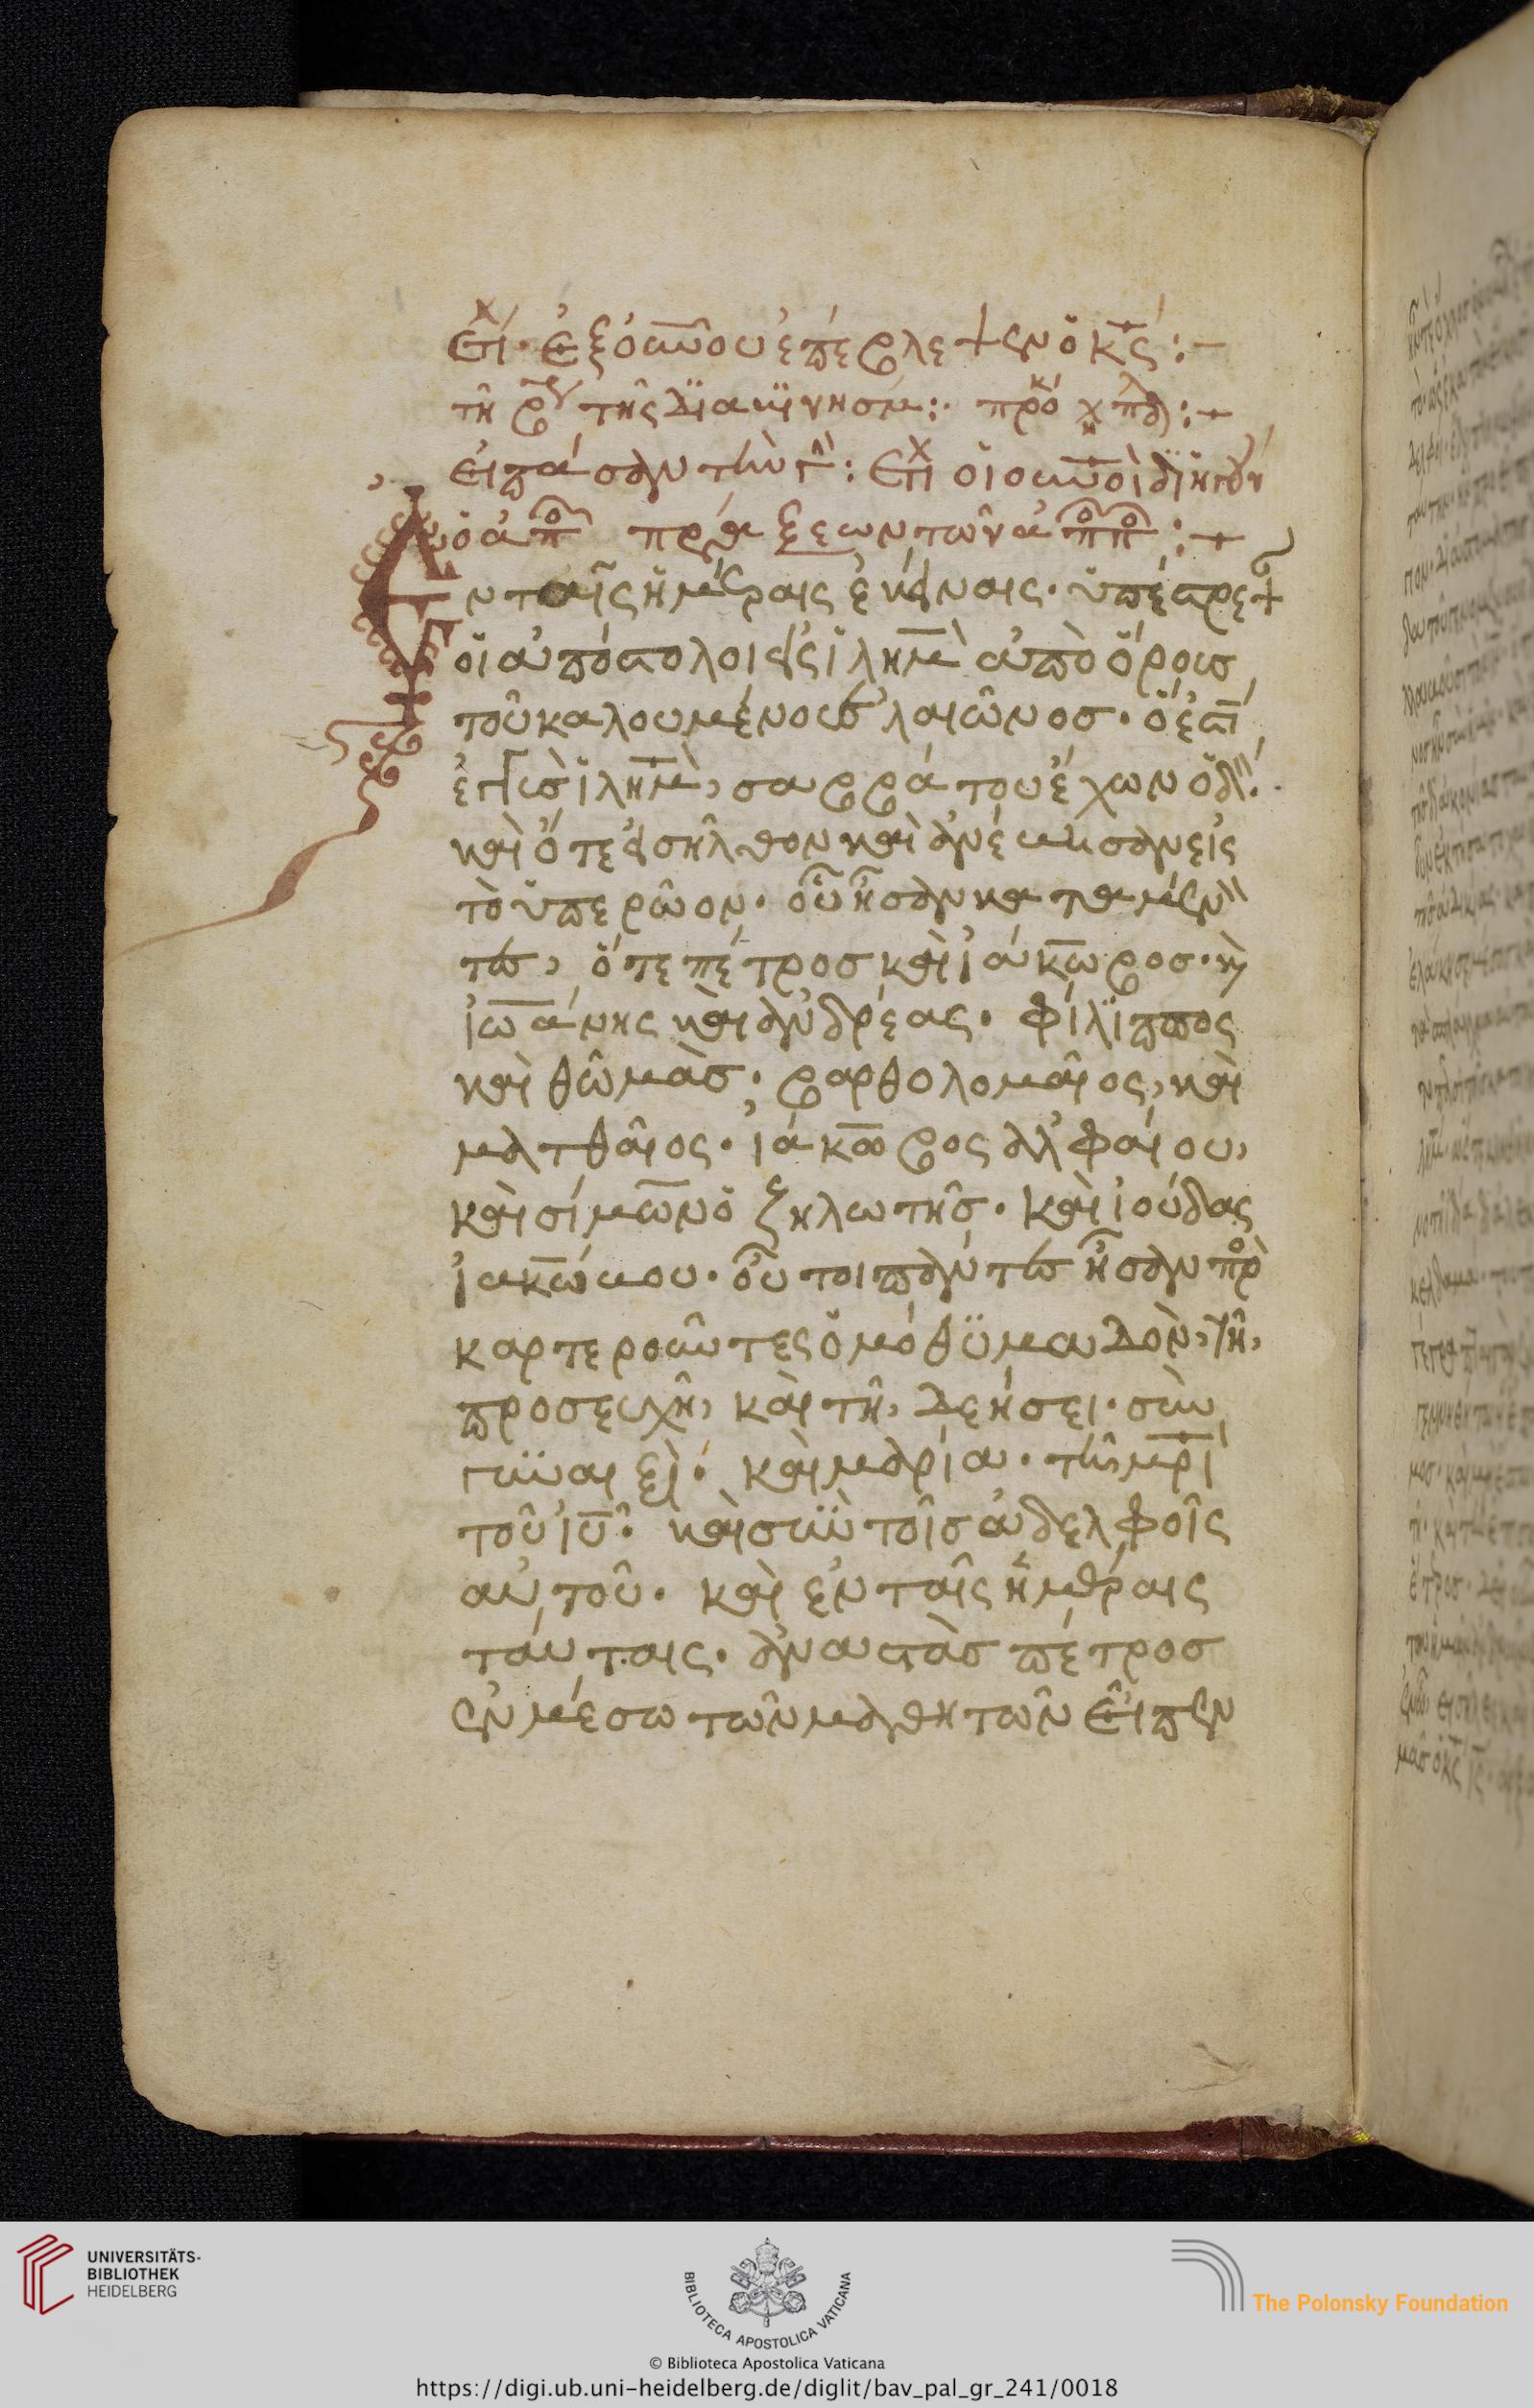 στί· ἐξ οὐνοῦ ἐπέβλεψεν ὁ κς:
τῆ β τῆς διακινησί: προκ
εἰς πᾶσαν τὴν γῆν: στί οἱ οὐνοὶ διηγοῦν
ὁ ἀπο πράξεων τῶν ἀποπο:
Ἐν ταῖς ἡμέραις ἐκείναις· ὑπέστρεψ
οἱ ἀπόστολοι εἰς ἰλημ ἀπὸ ὄρους
τοῦ καλουμένου ἐλαιῶνος· ὅ ἐστ
ἐγγὺς ἰλημ, σαββάτου ἔχων ὁδ.
καὶ ὅτε εἰσῆλθον καὶ ἀνέβησαν εἰς
τὸ ὑπερῶον· οὗ ἦσαν καταμέν
τες, ὅτε πέτρος καὶ ἰάκωβος· κ
ἰωάννης καὶ ἀνδρέας· φίλιππος
καὶ θωμὰς· βαρθολομαῖος, καὶ
ματθαῖος· ἰάκωβος ἀλφαίου,
καὶ σίμων ὁ ζηλωτῆς· καὶ ἰούδας
ἰακώβου· οὗτοι πάντες ἦσαν πρ
καρτεροῦντες ὁμόθυμαδὸν, τῆ,
προσευχῆ, καὶ τῆ, δεήσει· σὺν
γυναιξὶ· καὶ μαρία· τῆ μρι
τοῦ ιυ· καὶ σὺν τοῖς ἀδελφοῖς
αὐτοῦ· καὶ ἐν ταῖς ἡμέραις
ταύταις· ἀναστὰς πέτρος
ἐν μέσω τῶν μαθητῶν εἶπεν
UNIVERSITÄTS-
BIBLIOTHEK
HEIDELBERG
BIBLIOTECA APOSTOLICA VATICANA
The Polonsky Foundation
© Biblioteca Apostolica Vaticana
https://digi.ub.uni-heidelberg.de/diglit/bav_pal_gr_241/0018